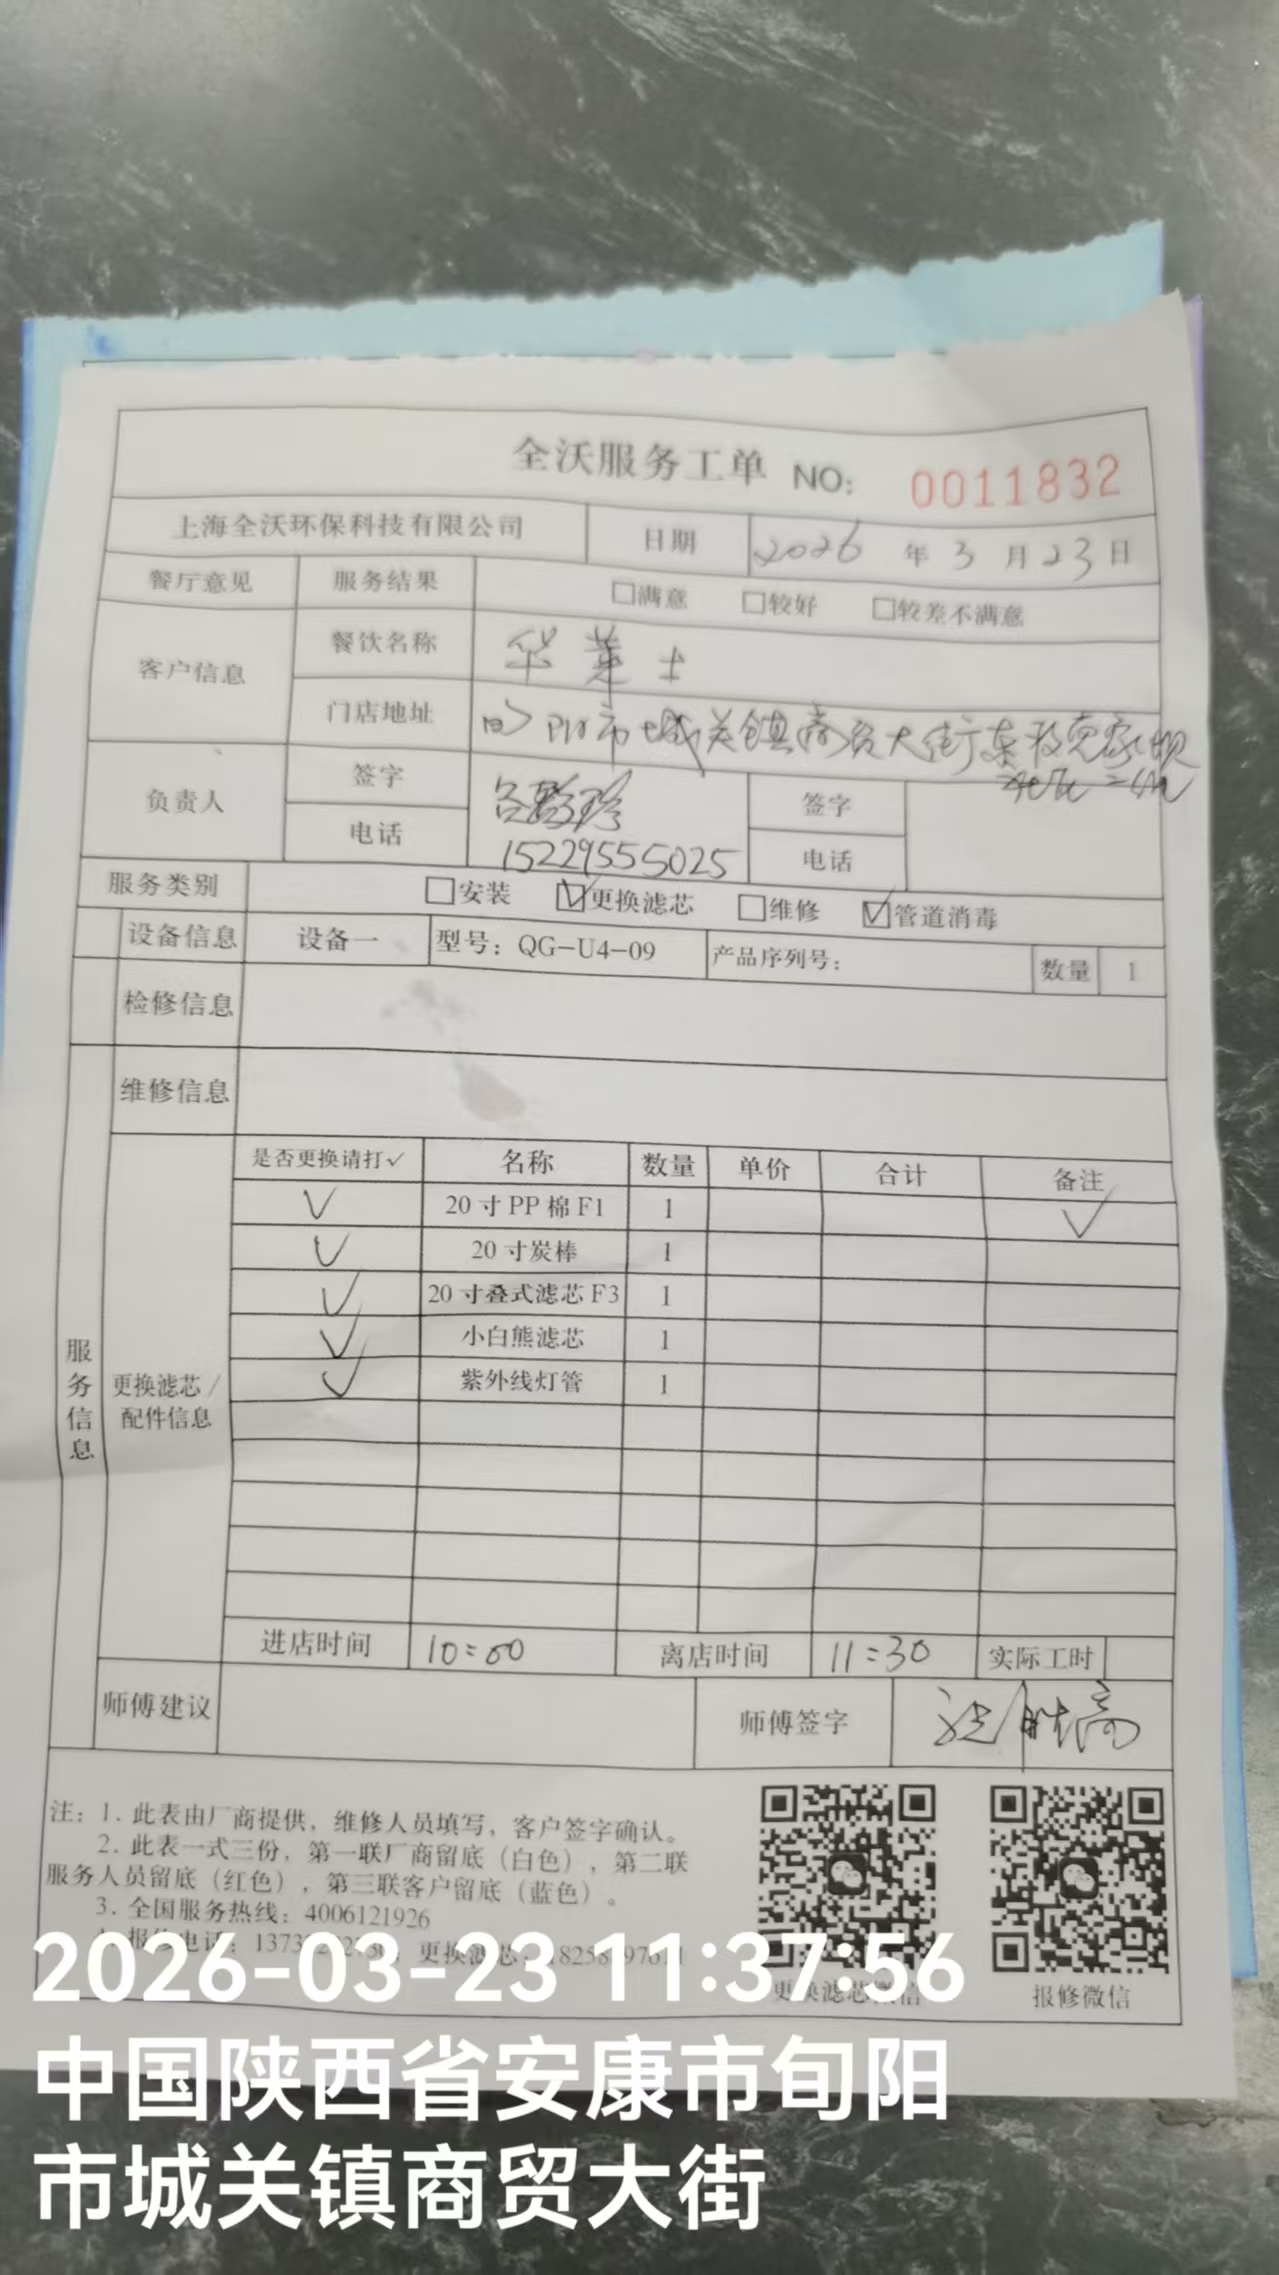 全沃服务工单 NO: 0011832
上海全沃环保科技有限公司 日期 2026 年 3 月 23 日
餐厅意见 服务结果 □满意 □较好 □较差不满意
客户信息 餐饮名称 华莱士
门店地址 旬阳市城关镇商贸大街
负责人 签字 签字
电话 15229555025 电话
服务类别 □安装 ☑更换滤芯 □维修 ☑管道消毒
设备信息 设备一 型号：QG-U4-09 产品序列号： 数量 1
检修信息
维修信息
服务信息
更换滤芯/
配件信息
是否更换请打✓ 名称 数量 单价 合计 备注
✓ 20寸PP棉F1 1 ✓
✓ 20寸炭棒 1
✓ 20寸叠式滤芯F3 1
✓ 小白熊滤芯 1
✓ 紫外线灯管 1
进店时间 10:00 离店时间 11:30 实际工时
师傅建议 师傅签字
注：1. 此表由厂商提供，维修人员填写，客户签字确认。
2. 此表一式三份，第一联厂商留底（白色），第二联
服务人员留底（红色），第三联客户留底（蓝色）。
3. 全国服务热线：4006121926
更换滤芯：
更换滤芯微信 报修微信
2026-03-23 11:37:56
中国陕西省安康市旬阳
市城关镇商贸大街